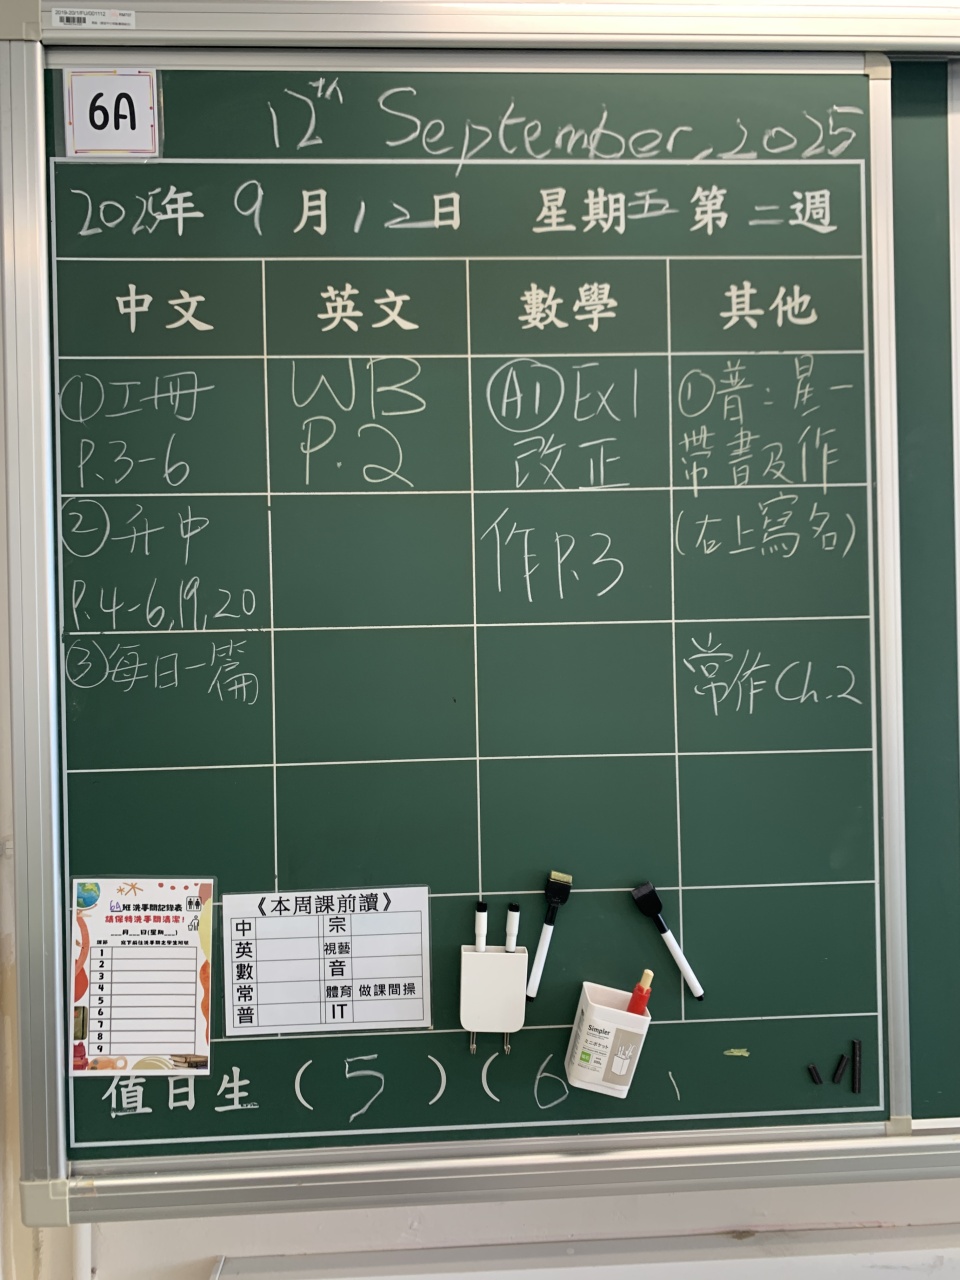 6A
12th September, 2025
2025年 9月12日 星期五 第二週
中文 英文 數學 其他
①工冊
P.3-6
WB
P.2
A1 Ex1
改正
①普:星一
帶書及作
②升中
P.4-6,19,20
作P.3
(右上寫名)
③每日一篇
常作 Ch.2
6A班洗手間記錄表
請保持洗手間清潔!
___月___日(星期___)
1
2
3
4
5
6
7
8
9
《本周課前讀》
中 宗
英 視藝
數 音
常 體育 做課間操
普 IT
Simpler
ミニポケット
值日生 (5)(6